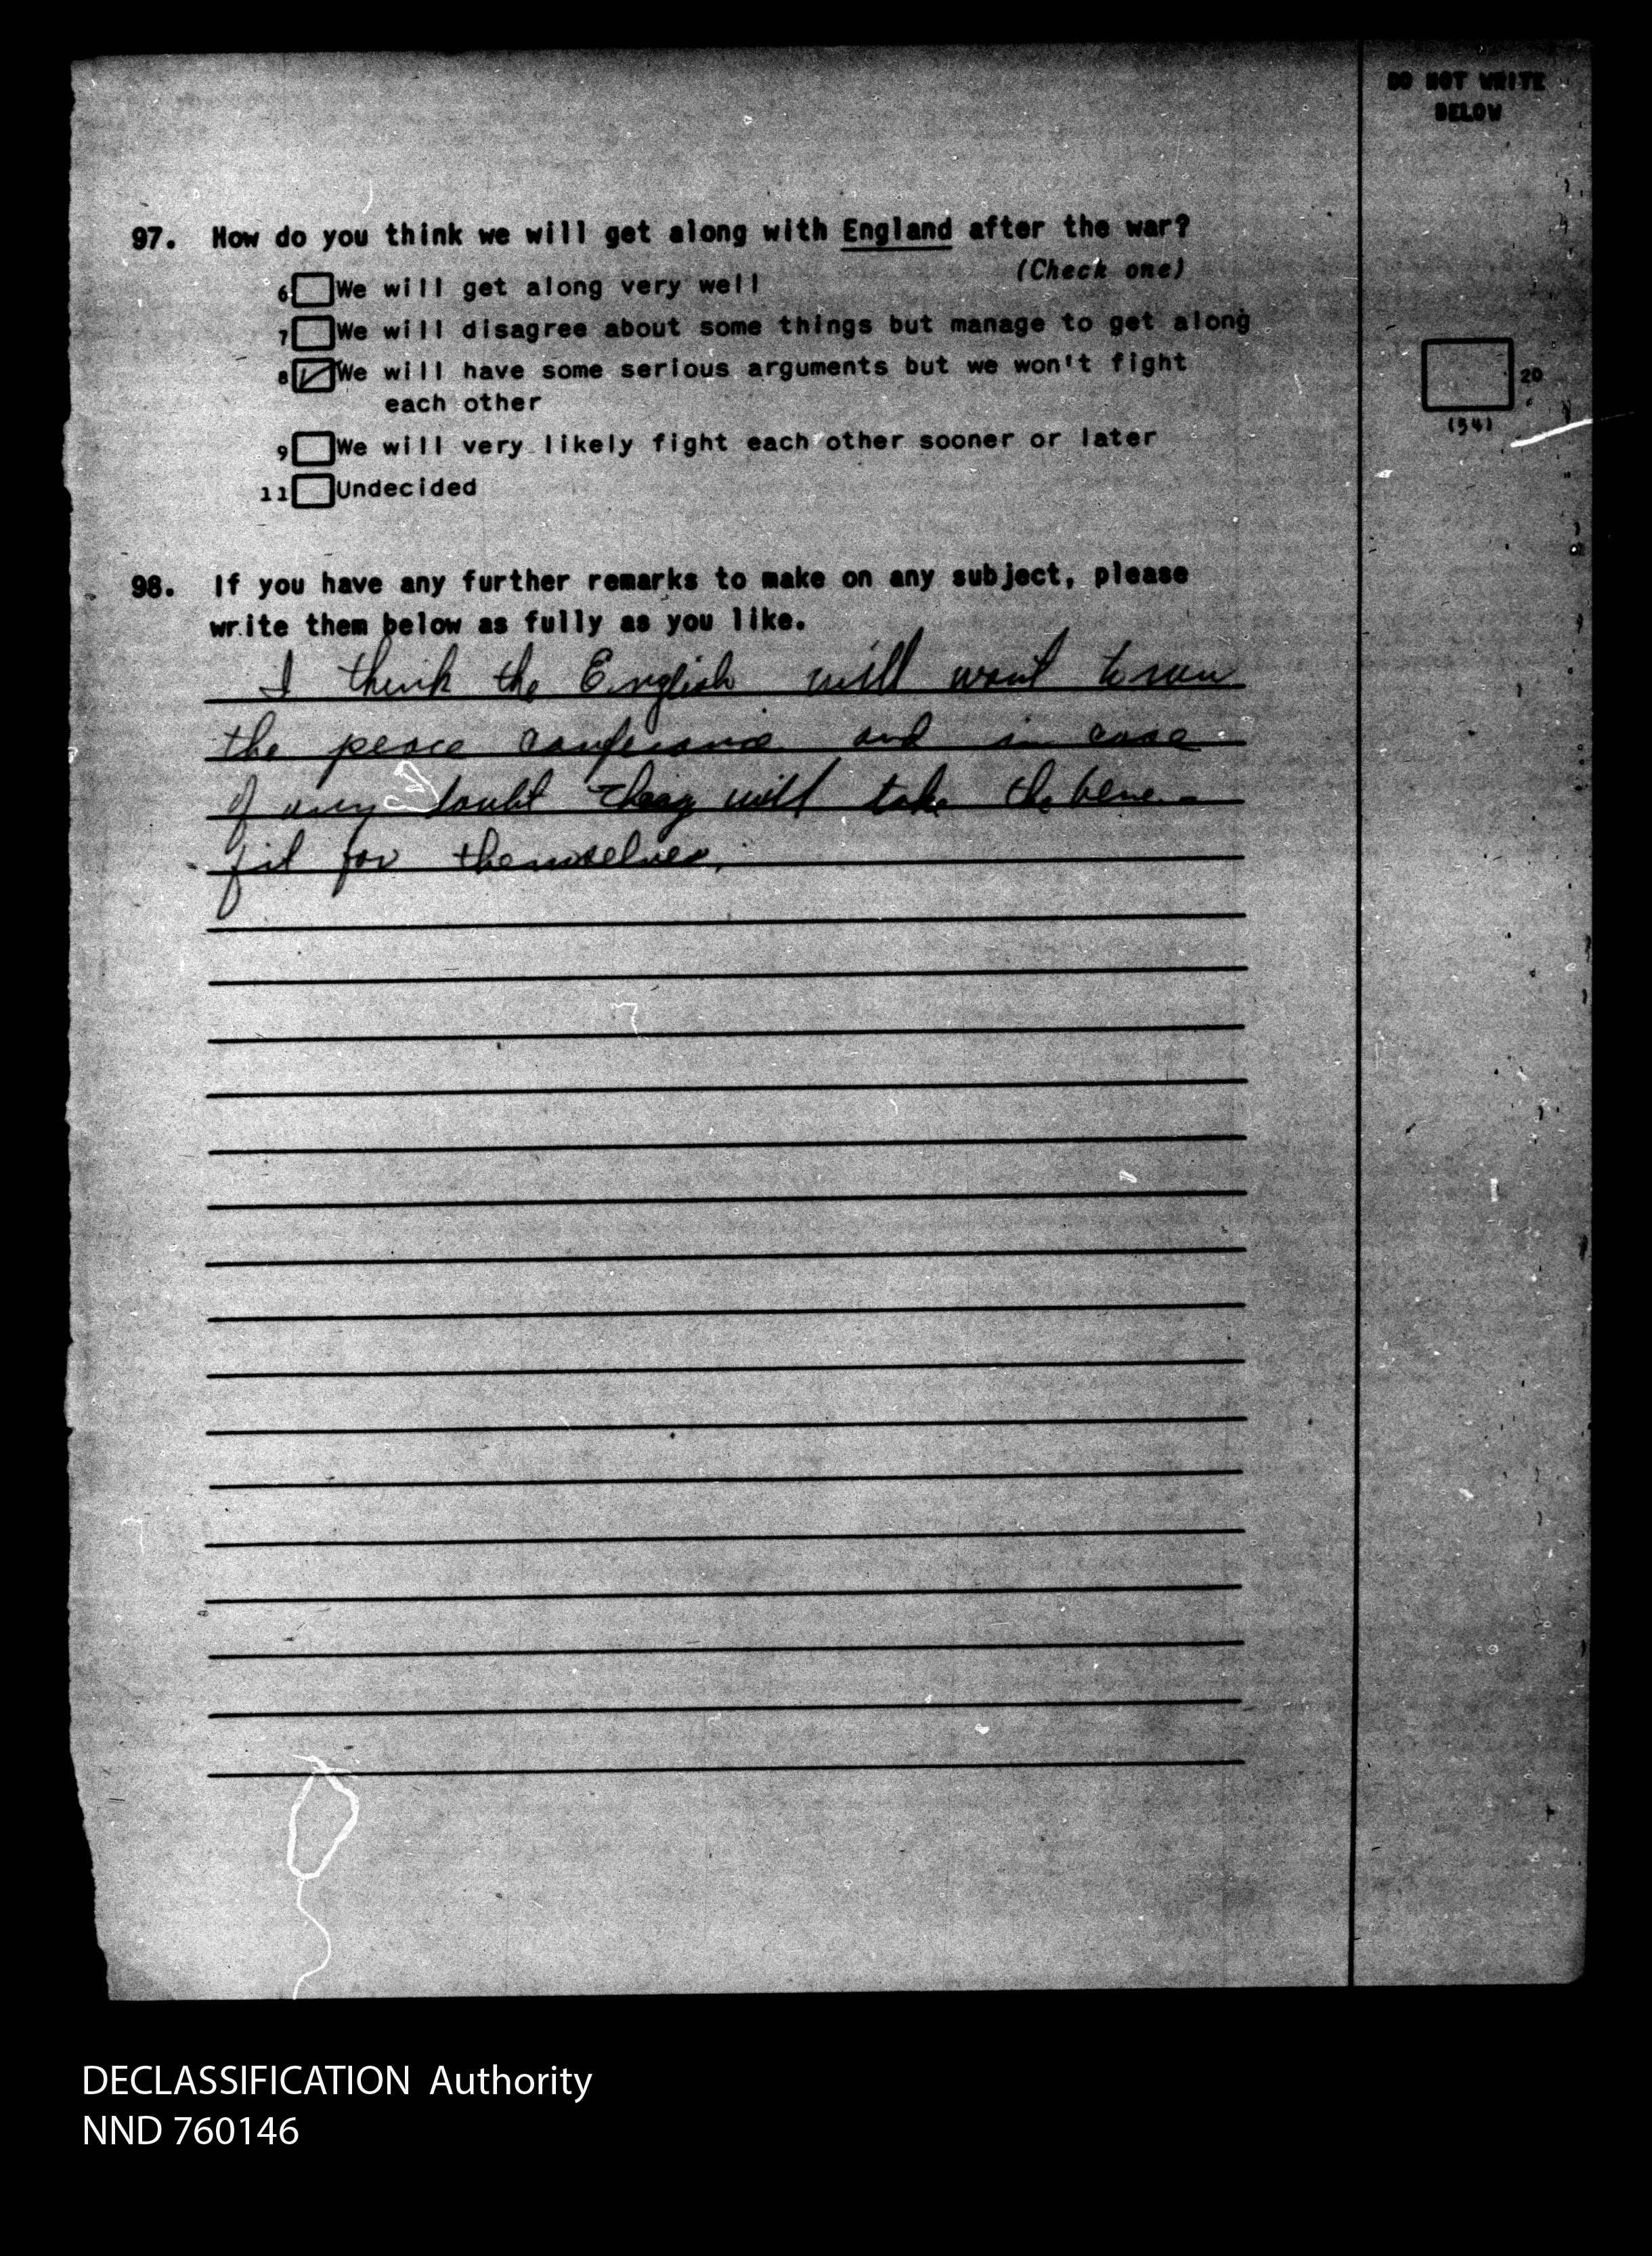 DO NOT WRITE
BELOW
97. How do you think we will get along with England after the war?
(Check one)
6 We will get along very well
7 We will disagree about some things but manage to get along
8 We will have some serious arguments but we won't fight
each other
20
(54)
9 We will very likely fight each other sooner or later
11 Undecided
98. If you have any further remarks to make on any subject, please
write them below as fully as you like.
I think the English will want to run
the peace conference and in case
of any doubt they will take the bene-
fit for themselves.
DECLASSIFICATION Authority
NND 760146